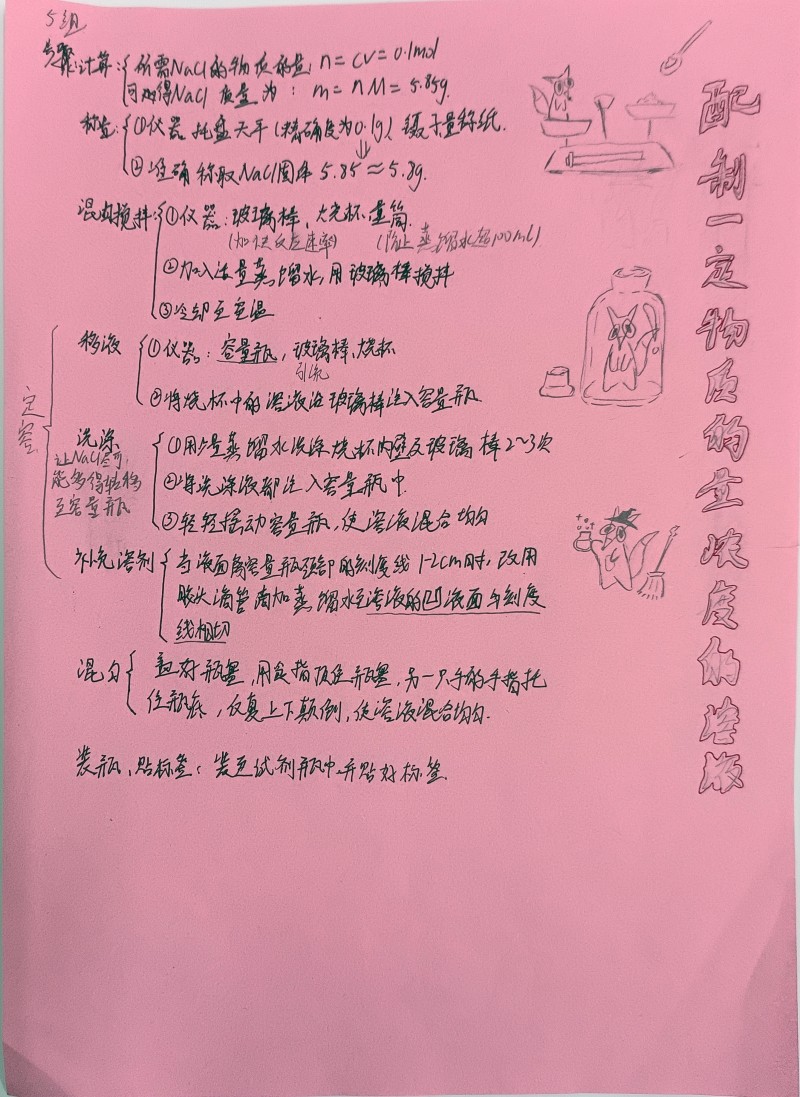 5组
配制一定物质的量浓度的溶液
步骤:计算:{所需NaCl的物质的量: n=cv=0.1mol
可知得NaCl质量为: m=nM=5.85g.
称量:{①仪器:托盘天平(精确度为0.1g)、镊子量称纸.
⇓
②准确称取NaCl固体 5.85≈5.8g.
混匀搅拌:{①仪器:玻璃棒、大烧杯、量筒.
(加快反应速率) (防止蒸馏水超100ml)
②加入适量蒸馏水,用玻璃棒搅拌
③冷却至室温
定容
移液{①仪器:容量瓶,玻璃棒、烧杯
引流
②将烧杯中的溶液沿玻璃棒注入容量瓶
洗涤{①用少量蒸馏水洗涤烧杯内壁及玻璃棒2~3次
让NaCl尽可
能多得转移
至容量瓶
②将洗涤液都注入容量瓶中.
③轻轻摇动容量瓶,使溶液混合均匀
补充溶剂{当液面离容量瓶颈部的刻度线1-2cm时,改用
胶头滴管滴加蒸馏水至溶液的凹液面与刻度
线相切
混匀{盖好瓶塞,用食指顶住瓶塞,另一只手的手指托
住瓶底,反复上下颠倒,使溶液混合均匀.
装瓶、贴标签:装至试剂瓶中,并贴好标签.